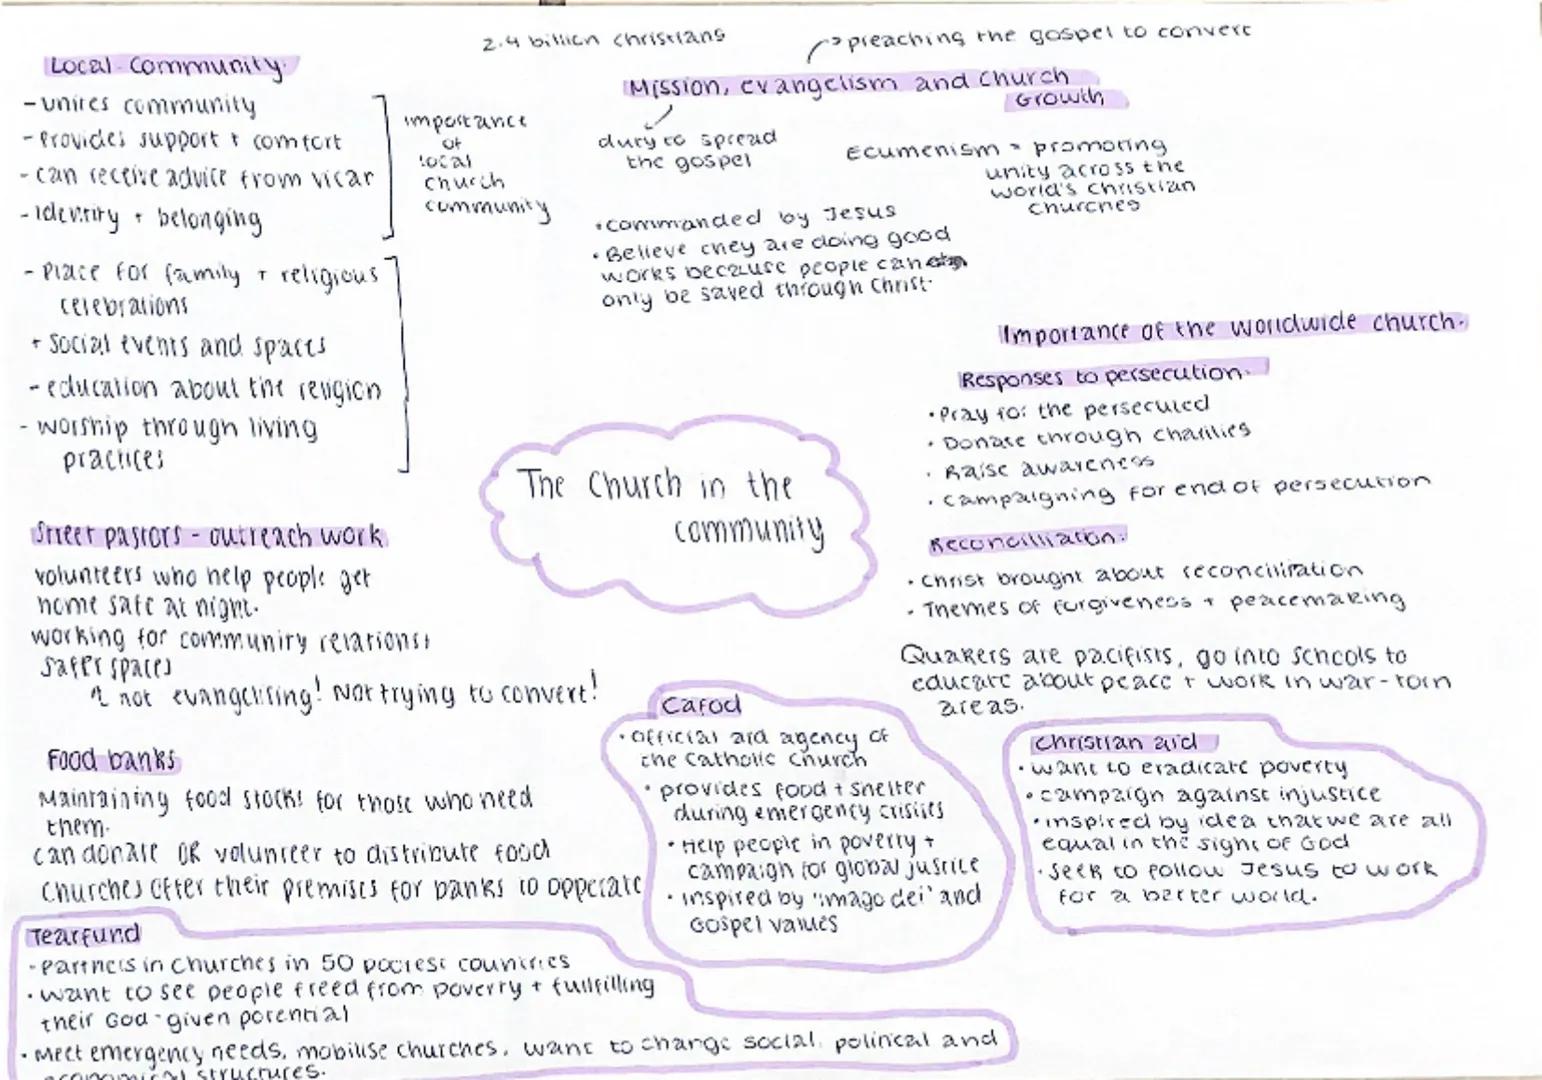 2.4 billion christians
→ preaching the gospel to convert
Local Community.
- unites community
- Provides support + comfort
- can receive advice from vicar
- Identity + belonging
importance
of
local
church
community
- Place for family + religious
celebrations
+ Social events and spaces
- education about the religion
- worship through living
practices
Mission, evangelism and Church
Growth
duty to spread
the gospel
Ecumenism = promoting
unity across the
world's Christian
Churches
• commanded by Jesus
• Believe they are doing good
works because people can
only be saved through Christ.
Importance of the worldwide church.
Responses to persecution.
• Pray for the persecuted
• Donate through charities
• Raise awareness
• campaigning for end of persecution
The Church in the
community
Reconcilliation.
• Christ brought about reconciliation
• Themes of forgiveness + peacemaking
Quakers are pacifists, go into schools to
educate about peace + work in war-torn
areas.
Street pastors - outreach work
volunteers who help people get
home safe at night.
working for community relations,
safer spaces
not evangelising! Not trying to convert!
Food banks
Maintaining food stocks for those who need
them.
can donate OR volunteer to distribute food
Churches offer their premises for banks to opperate
Cafod
• official aid agency of
the Catholic Church
• provides food + shelter
during emergency crisies
• Help people in poverty +
campaign for global justice
• inspired by 'imago dei' and
Gospel values
Christian aid
• want to eradicate poverty
• campaign against injustice
• inspired by idea that we are all
equal in the sight of God
• Seek to follow Jesus to work
for a better world.
Tearfund
- Partners in Churches in 50 poorest countries
• want to see people freed from poverty + fullfilling
their God-given potential
• Meet emergency needs, mobilise churches, want to change social, political and
economical structures.